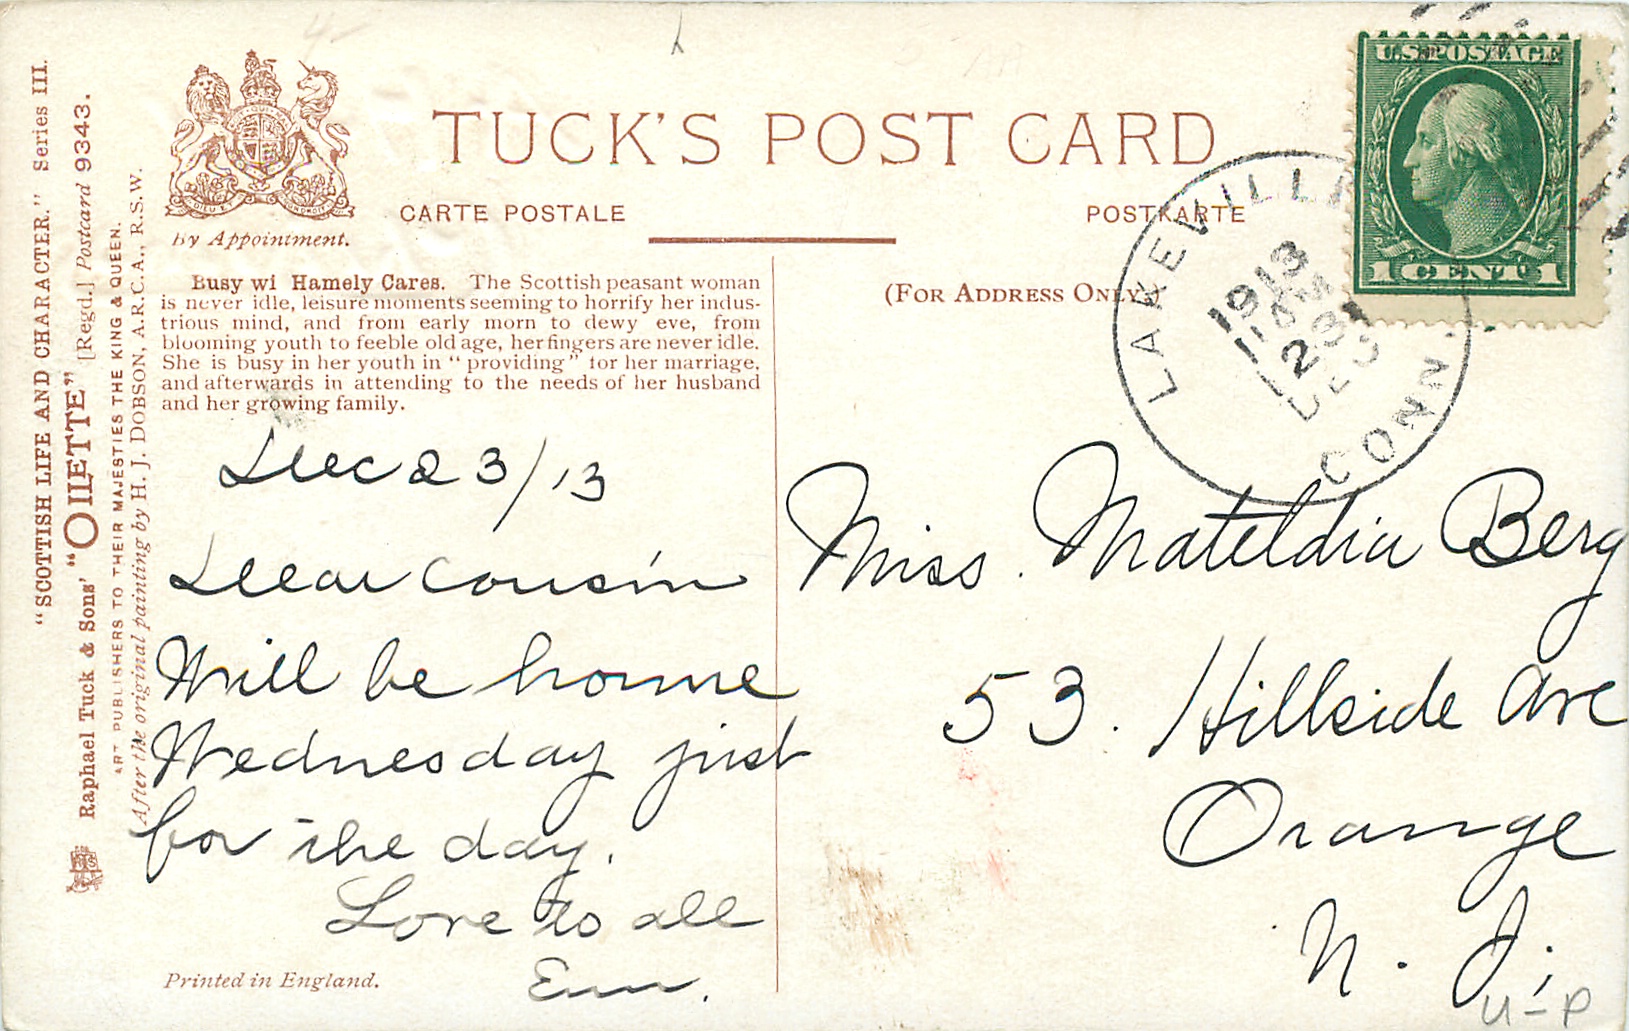 "SCOTTISH LIFE AND CHARACTER." Series III.
Raphael Tuck & Sons' "OILETTE" [Regd.] Postcard 9343.
ART PUBLISHERS TO THEIR MAJESTIES THE KING & QUEEN.
After the original painting by H. J. DOBSON, A.R.C.A., R.S.W.
By Appointment.
TUCK'S POST CARD
CARTE POSTALE
POSTKARTE
(FOR ADDRESS ONLY.)
Busy wi Hamely Cares. The Scottish peasant woman
is never idle, leisure moments seeming to horrify her indus-
trious mind, and from early morn to dewy eve, from
blooming youth to feeble old age, her fingers are never idle.
She is busy in her youth in "providing" for her marriage,
and afterwards in attending to the needs of her husband
and her growing family.
Dec 23/13
Dear Cousin
Will be home
Wednesday just
for the day.
Love to all
Printed in England.
U.S. POSTAGE
1 CENT 1
LAKEVILLE
CONN.
1913
DEC
Miss. Mateldia Berg
53. Hillside Ave
Orange
N. J.
U-P